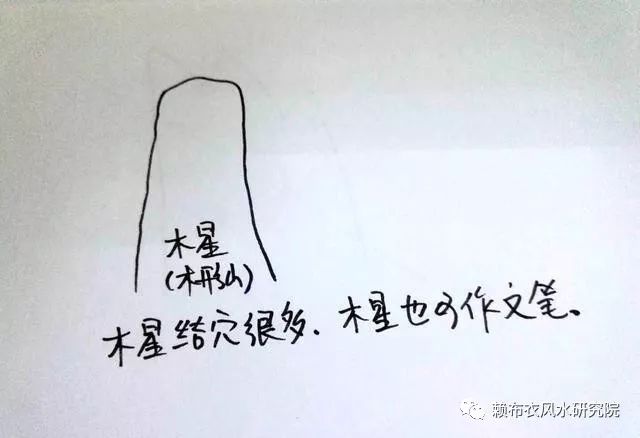 木星
(木形山)
木星结穴很多、木星也可作文笔。
赖布衣风水研究院